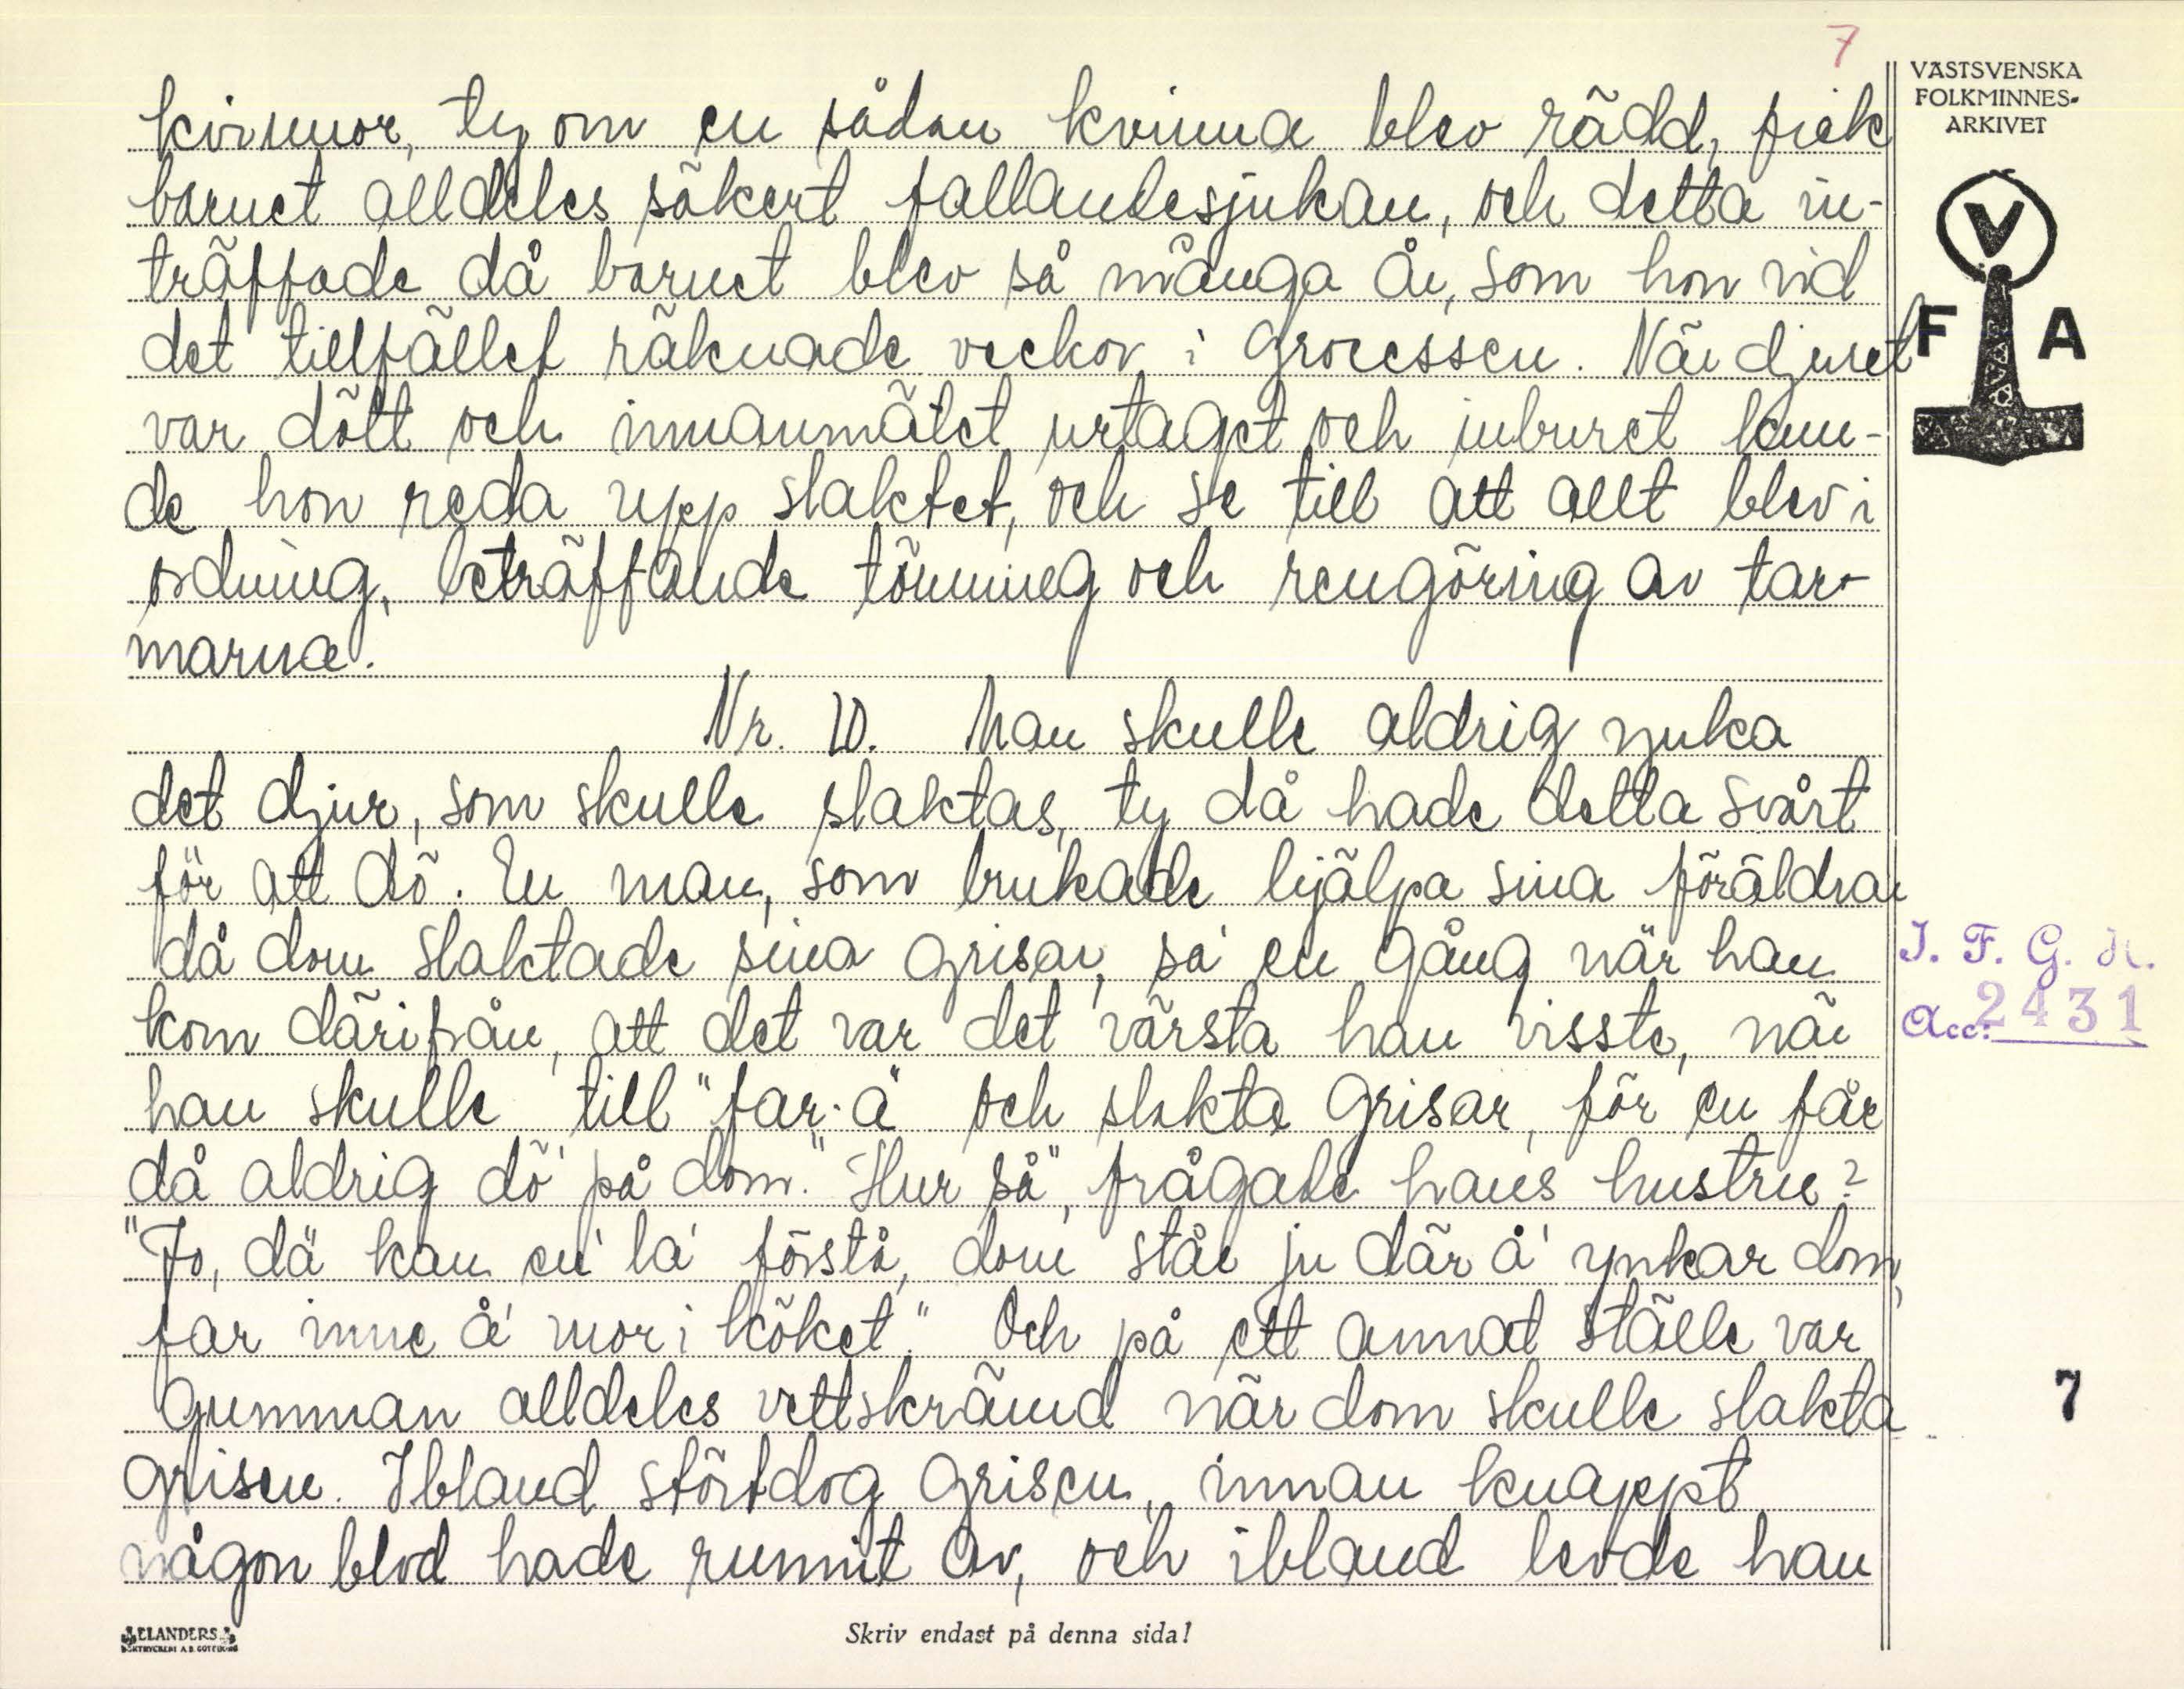 7
VÄSTSVENSKA
FOLKMINNES-
ARKIVET
V
F A
kvinnor, ty om en sådan kvinna blev rädd, fick
barnet alldeles säkert fallandesjukan, och detta in-
träffade då barnet blev så många år, som hon vid
det tillfället räknade veckor i grocessen. När djuret
var dött och innanmätet urtaget och inburet kun-
de hon reda upp slaktet, och se till att allt blev i
ordning, beträffande tömning och rengöring av tar-
marna.
Nr. 10. Man skulle aldrig ynka
det djur, som skulle slaktas, ty då hade detta svårt
för att dö. En man, som brukade hjälpa sina föräldrar
då dom slaktade sina grisar, sa' en gång när han
kom därifrån, att det var det värsta han visste, när
han skulle till "far-a" och slakta grisar, för en får
då aldrig dö' på dom." "Hur så", frågade hans hustru?
"Jo, dä kan en' la' förstå, dom står ju där å' ynkar dom,
far inne å' mor i köket." Och på ett annat ställe var
gumman alldeles vettskrämd när dom skulle slakta
grisen. Ibland störtdog grisen, innan knappt
någon blod hade runnit av, och ibland levde han
I. F. G. H.
Acc. 2431
7
ELANDERS
BOKTRYCKERI A.B. GÖTEBORG
Skriv endast på denna sida!